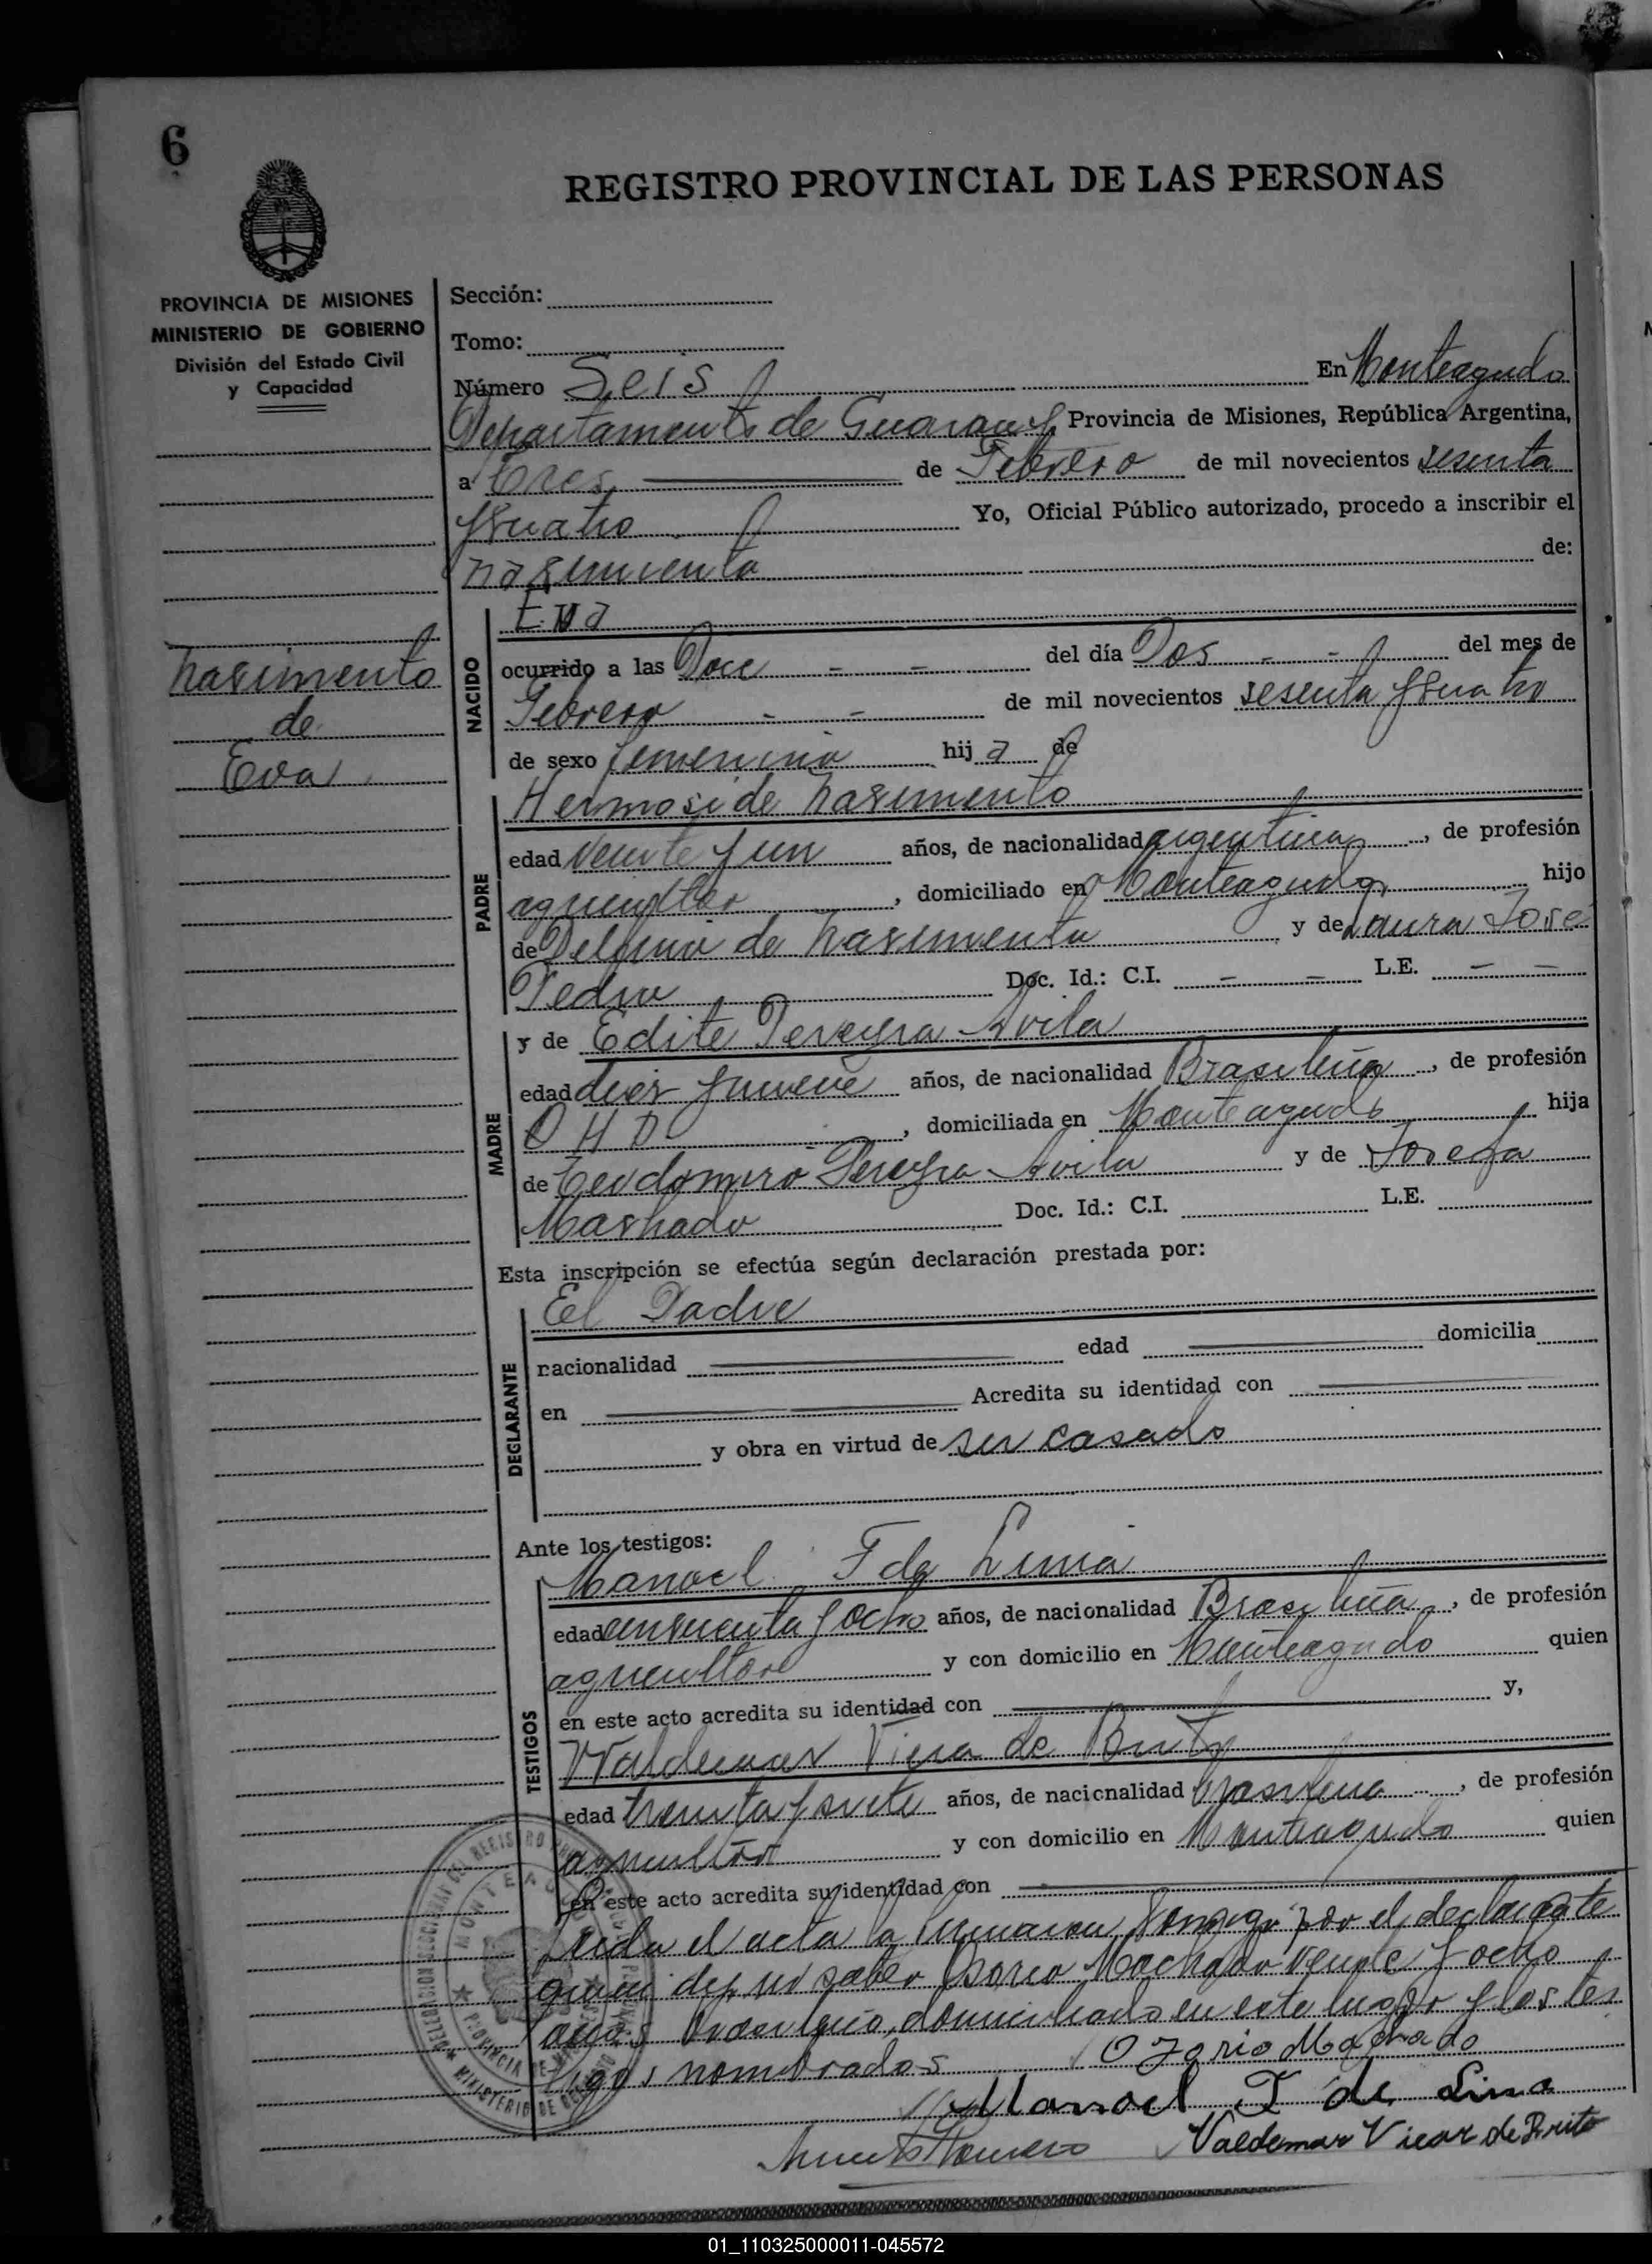 6
REGISTRO PROVINCIAL DE LAS PERSONAS
PROVINCIA DE MISIONES
MINISTERIO DE GOBIERNO
División del Estado Civil
y Capacidad
Nasimento
de
Eva
Sección:
Tomo:
Número Seis En Monteagudo
Departamento de Guarany Provincia de Misiones, República Argentina,
a Tres de Febrero de mil novecientos sesenta
ycuatro Yo, Oficial Público autorizado, procedo a inscribir el
nasimiento de:
NACIDO
Eva
ocurrido a las Doce - - del día Dos - - del mes de
Febrero - - de mil novecientos sesenta ycuatro
de sexo femenino hij a de
PADRE
Hermosi de Nasimento
edad veinte y un años, de nacionalidad argentina, de profesión
agricultor, domiciliado en Monteagudo hijo
de Delfino de Nasimento y de Laura José
Pedro Doc. Id.: C.I. - - L.E. - -
MADRE
y de Edite Pereyra Avila
edad diez ynueve años, de nacionalidad Brasileña, de profesión
Q H D, domiciliada en Monteagudo hija
de Teodomiro Pereyra Avila y de Josefa
Mashado Doc. Id.: C.I. L.E.
Esta inscripción se efectúa según declaración prestada por:
DECLARANTE
El Padre
nacionalidad edad domicilia
en Acredita su identidad con
y obra en virtud de ser casado
Ante los testigos:
TESTIGOS
Manoel F de Lima
edad cinsuenta y ocho años, de nacionalidad Brasileña, de profesión
agricultore y con domicilio en Monteagudo quien
en este acto acredita su identidad con y,
Waldemar Viera de Brito
edad treinta y siete años, de nacionalidad brasilena, de profesión
agricultor y con domicilio en Monteagudo quien
en este acto acredita su identidad con
Leida el acta la firmaron conmigo por el declarante
quien dijo no saber Osorio Machado veinte y ocho
años brasileño, domiciliado en este lugar y los tes
tigos nombrados Ozorio Machado
Manoel F de Lima
Romero Valdemar Viear de Brito
DELEGACION SECCIONAL DEL REGISTRO
MONTEAGUDO
PROVINCIA DE MISIONES
MINISTERIO DE GOBIERNO
01_110325000011-045572